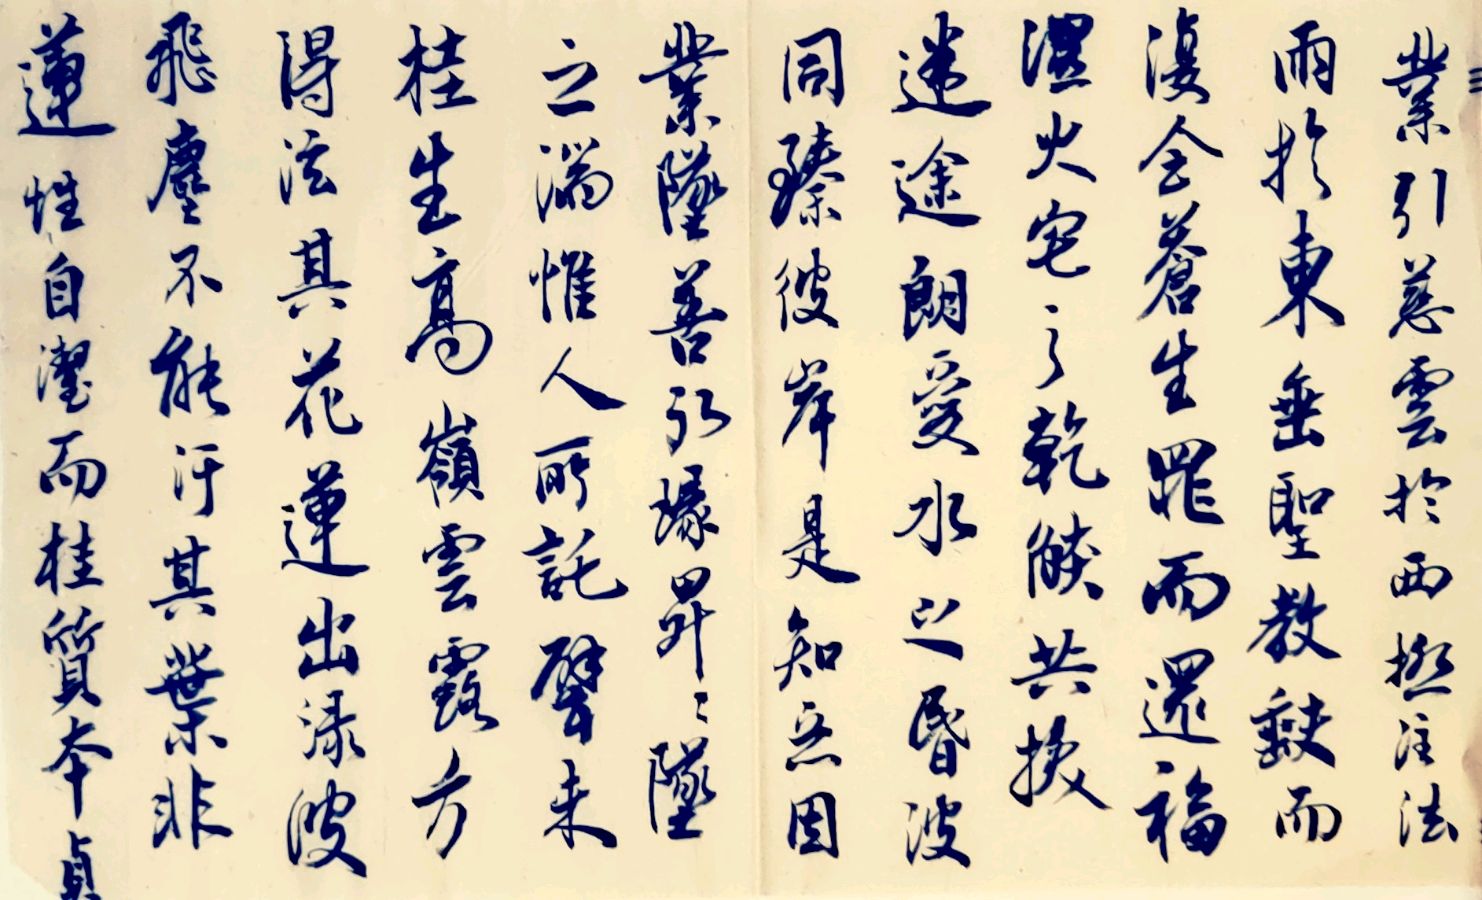 業引慈雲於西極注法
雨於東垂聖教缺而
復全蒼生罪而還福
濕火宅之乾燄共拔
迷途朗愛水之昏波
同臻彼岸是知惡因
業墜善以緣昇〻墜
之端惟人所託譬夫
桂生高嶺雲露方
得泫其花蓮出淥波
飛塵不能汙其葉非
蓮性自潔而桂質本貞